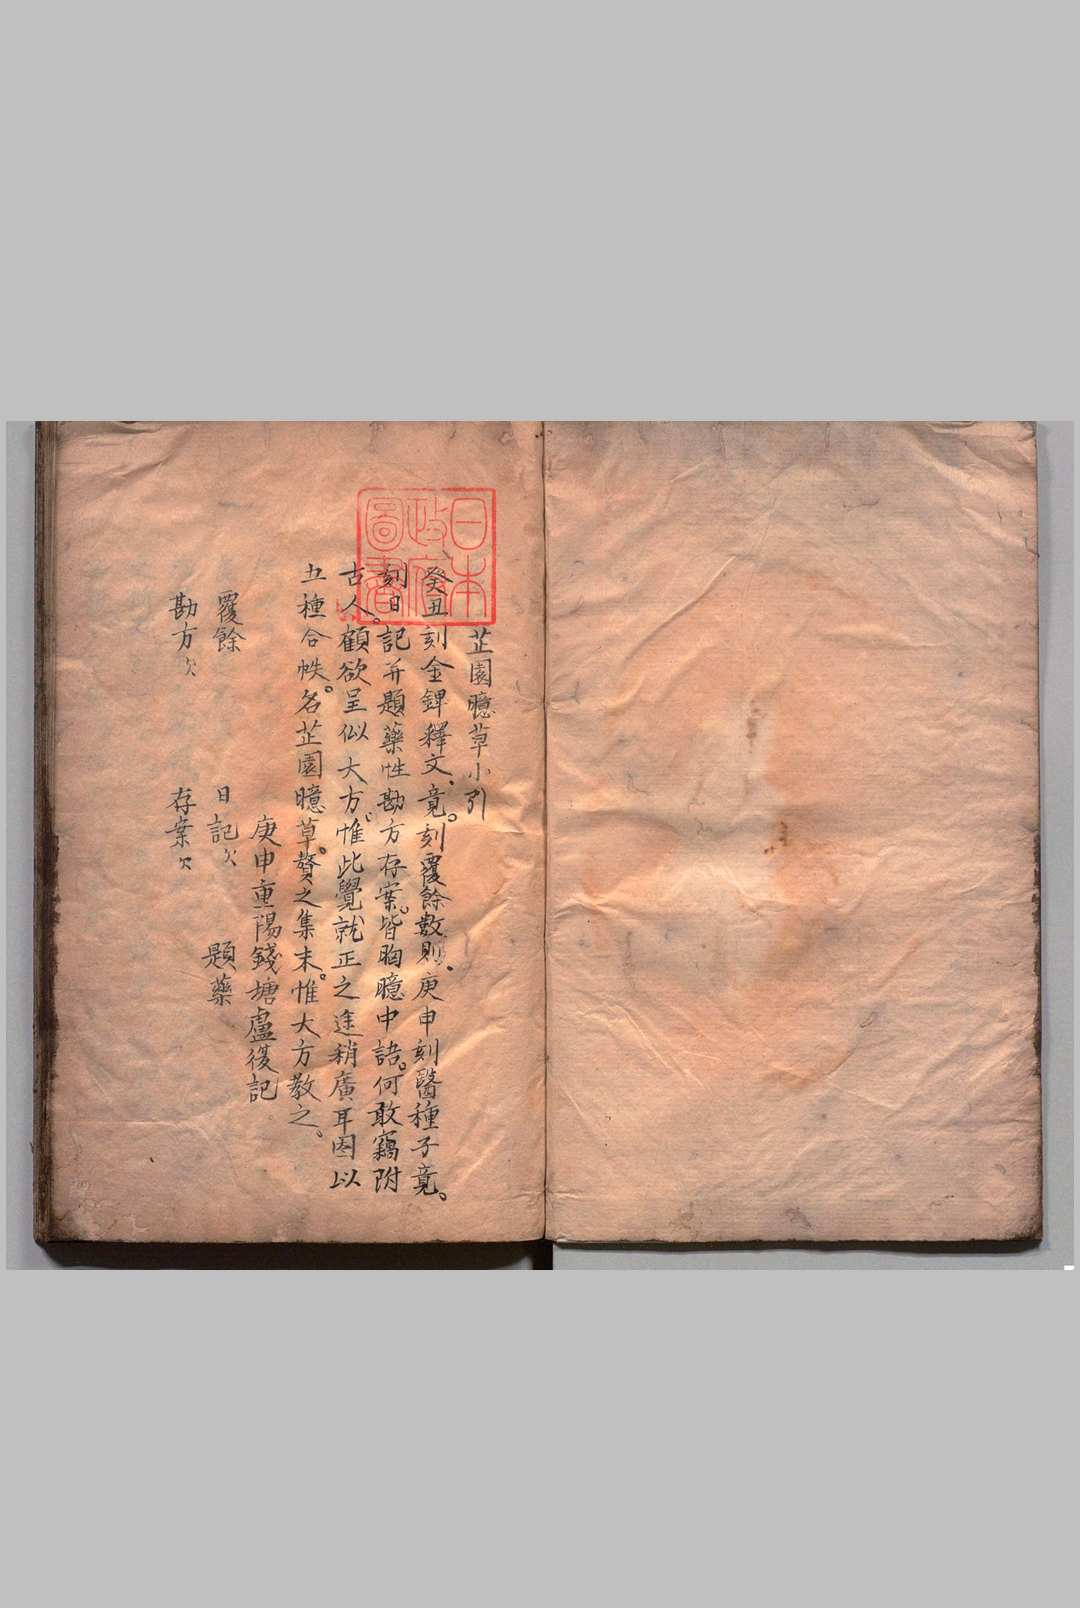 芷園臆草小引
癸丑刻金錍釋文、竟。刻覆餘數則、庚申刻醫種子竟。
刻日記并題藥性勘方存案。皆胸臆中語。何敢竊附
古人。顧欲呈似大方。惟此覺就正之途稍廣耳因以
五種合帙。名芷園臆草。贅之集末。惟大方教之。
庚申重陽錢塘盧復記
覆餘　日記欠　題藥
勘方欠　存案欠
日本
政府
圖書